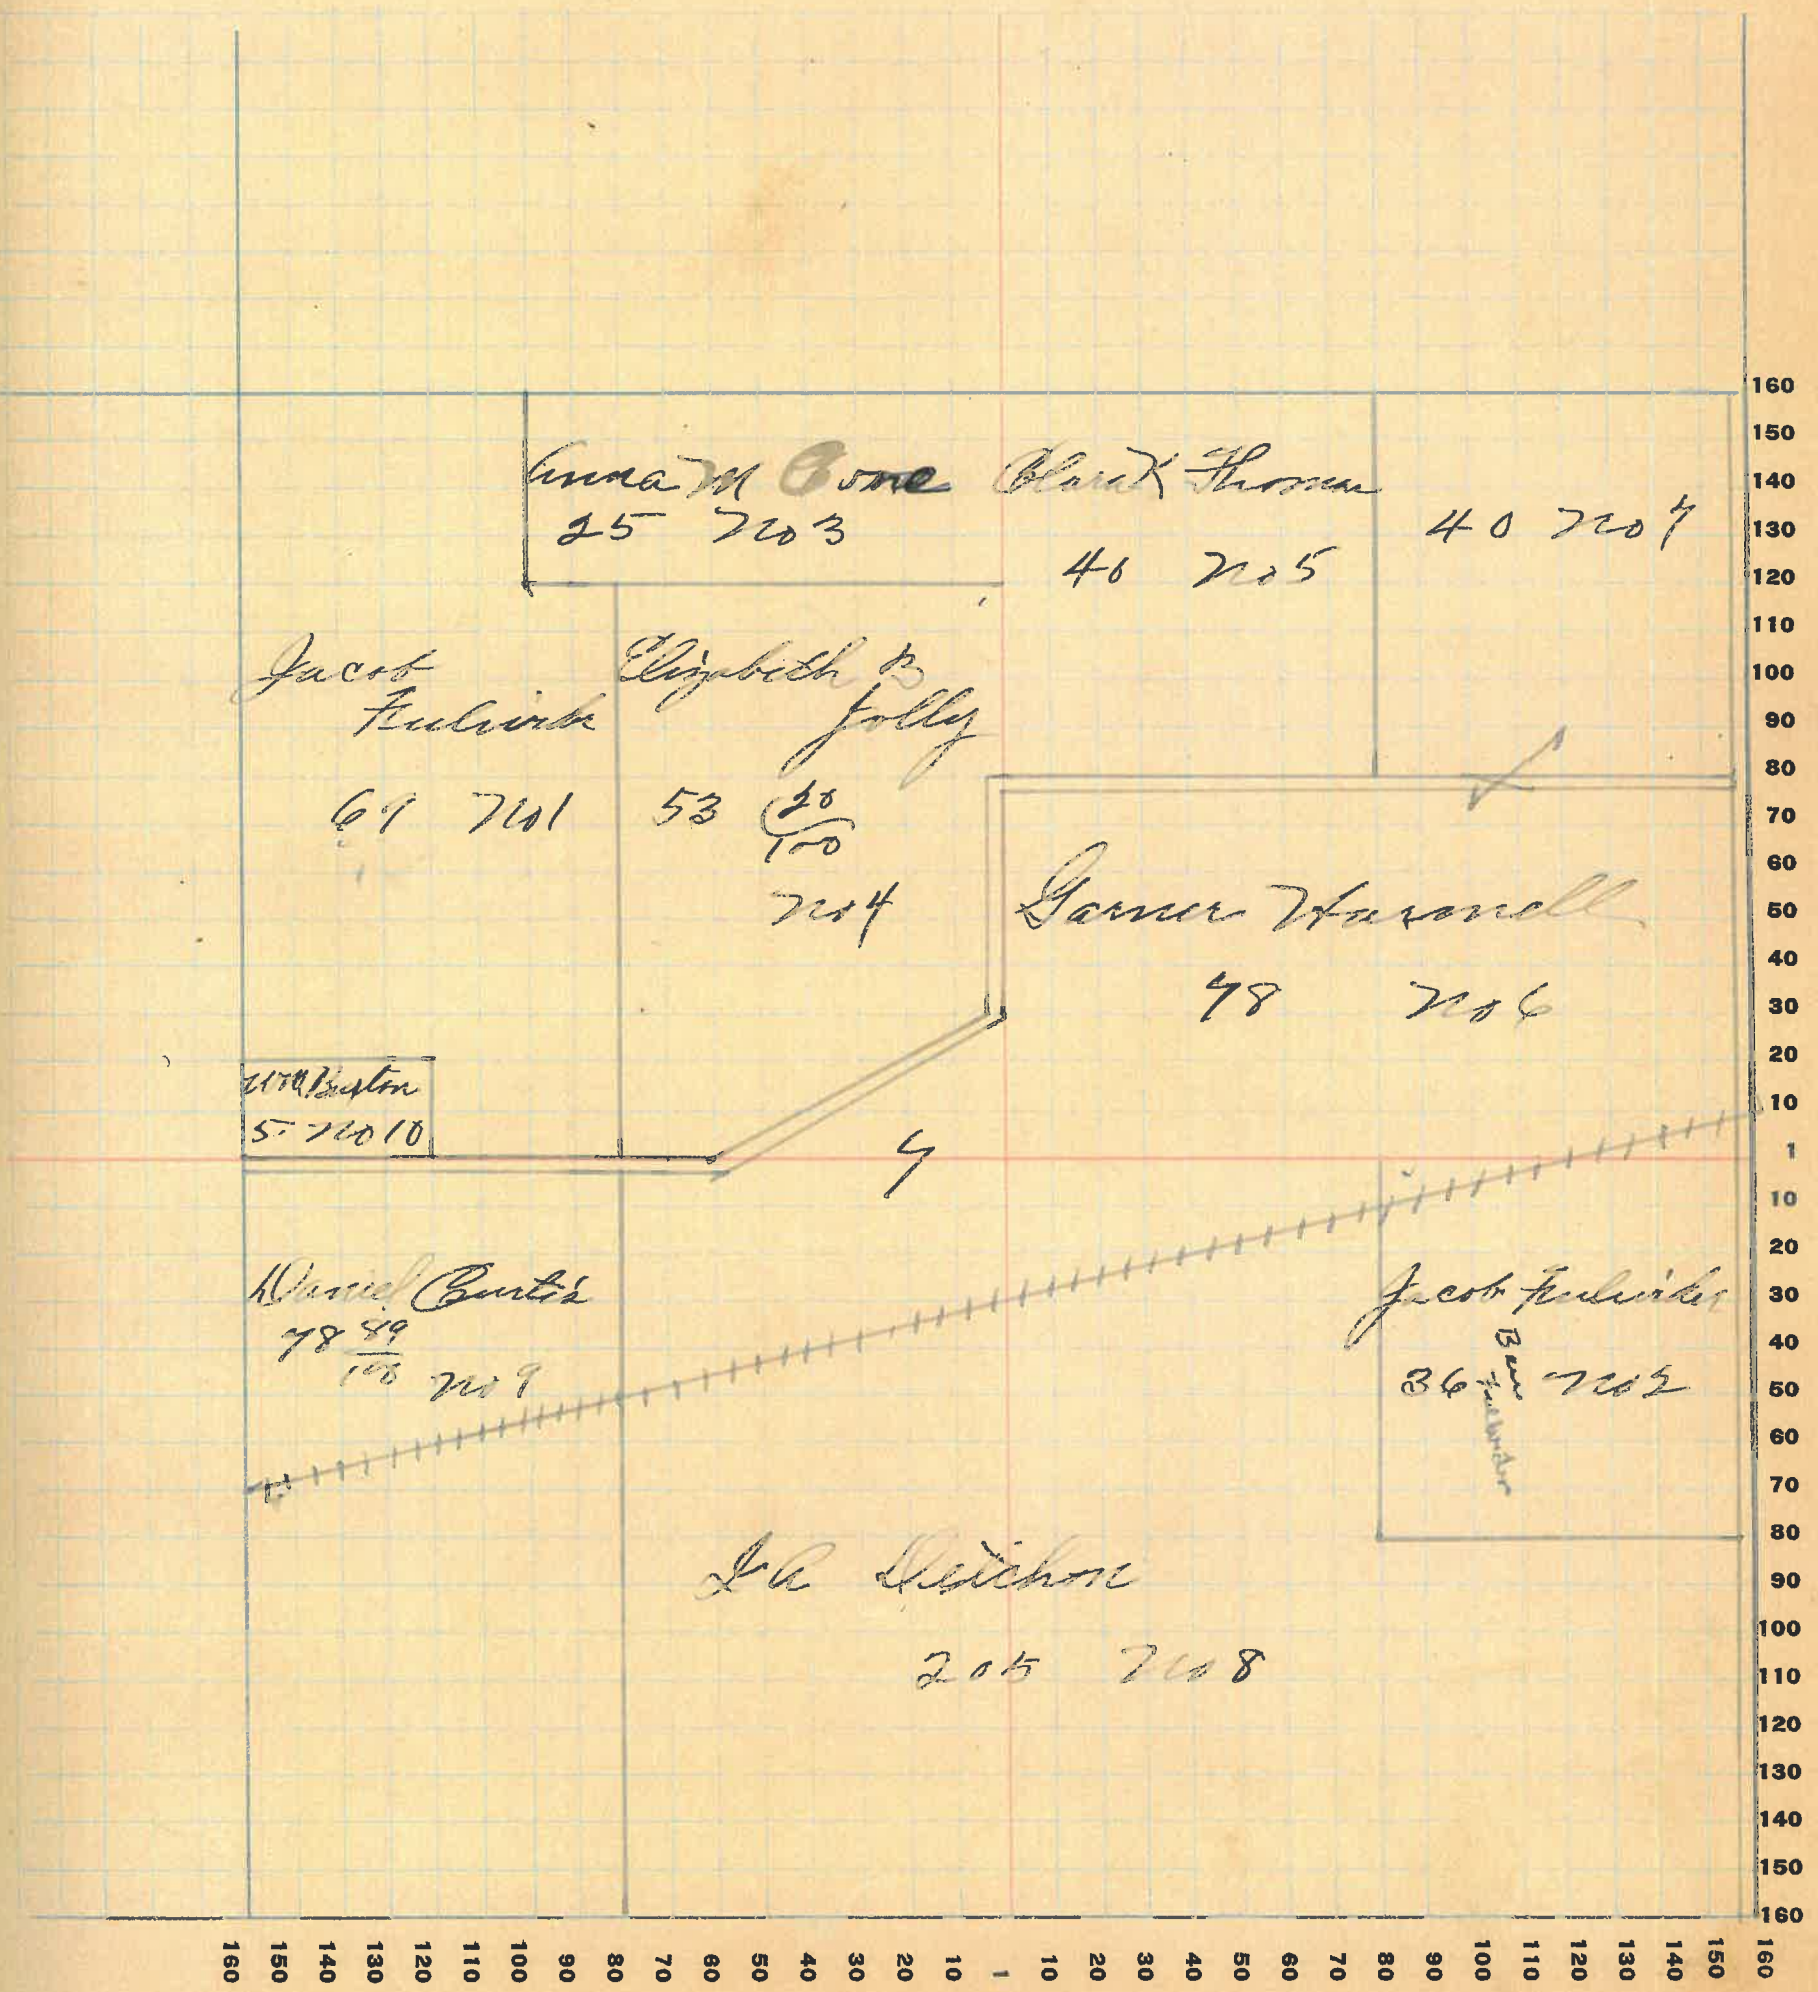 Anna M Cone
25 No 3
Clara K Thomas
40 No 5
40 No 7
Jacob
69 No 1
Elizabeth B
Jolly
53 20/100
No 4
Garner Harmell
78 No 6
Wm Burton
5 No 10
7
Daniel Curtis
78 89/100
No 9
Jacob
36 No 2
Ben
205 No 8
160
150
140
130
120
110
100
90
80
70
60
50
40
30
20
10
1
10
20
30
40
50
60
70
80
90
100
110
120
130
140
150
160
160 150 140 130 120 110 100 90 80 70 60 50 40 30 20 10 1 10 20 30 40 50 60 70 80 90 100 110 120 130 140 150 160